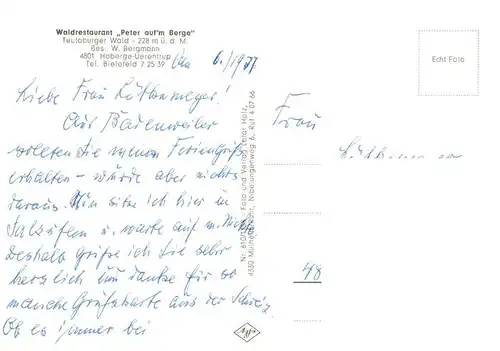 Waldrestaurant „Peter auf'm Berge"
Teutoburger Wald - 228 m ü. d. M.
Bes. W. Bergmann
4801 Hoberge-Uerentrup
Tel. Bielefeld 7 25 39
6./1977
Echt Foto
Liebe Frau
Aus Badenweiler
sollten Sie meinen Feriengruß
erhalten - wurde aber nichts
daraus. Nun sitze ich hier in
Salzuflen u. warte auf m.
Deshalb grüße ich Sie sehr
herzlich und danke für so
manche Grußkarte aus der Schweiz
Ob es immer bei
Frau
48
Foto und Verlag Lothar Holz,
4330 Mülheim-Ruhr, Nibelungenweg 6, Ruf 4 07 66
Agfa